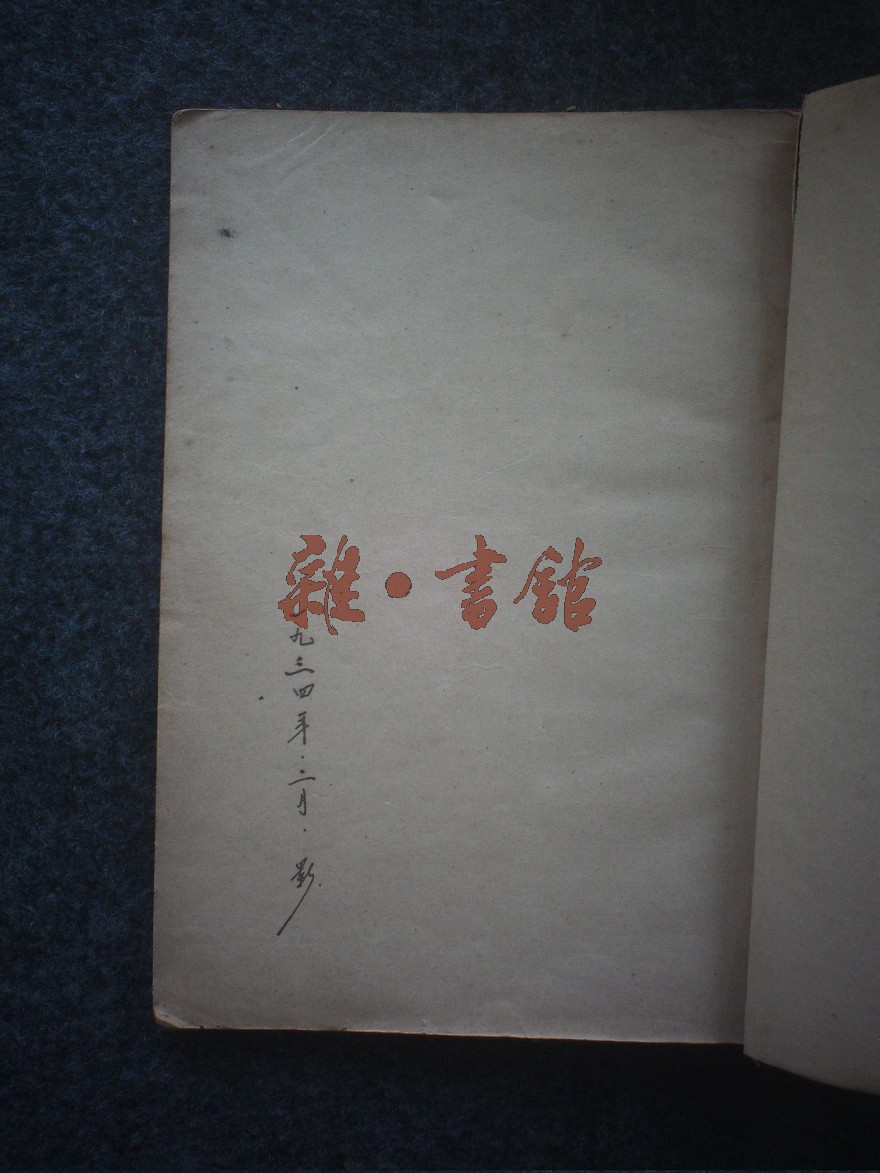 雜·書館
一九三四年·二月·影